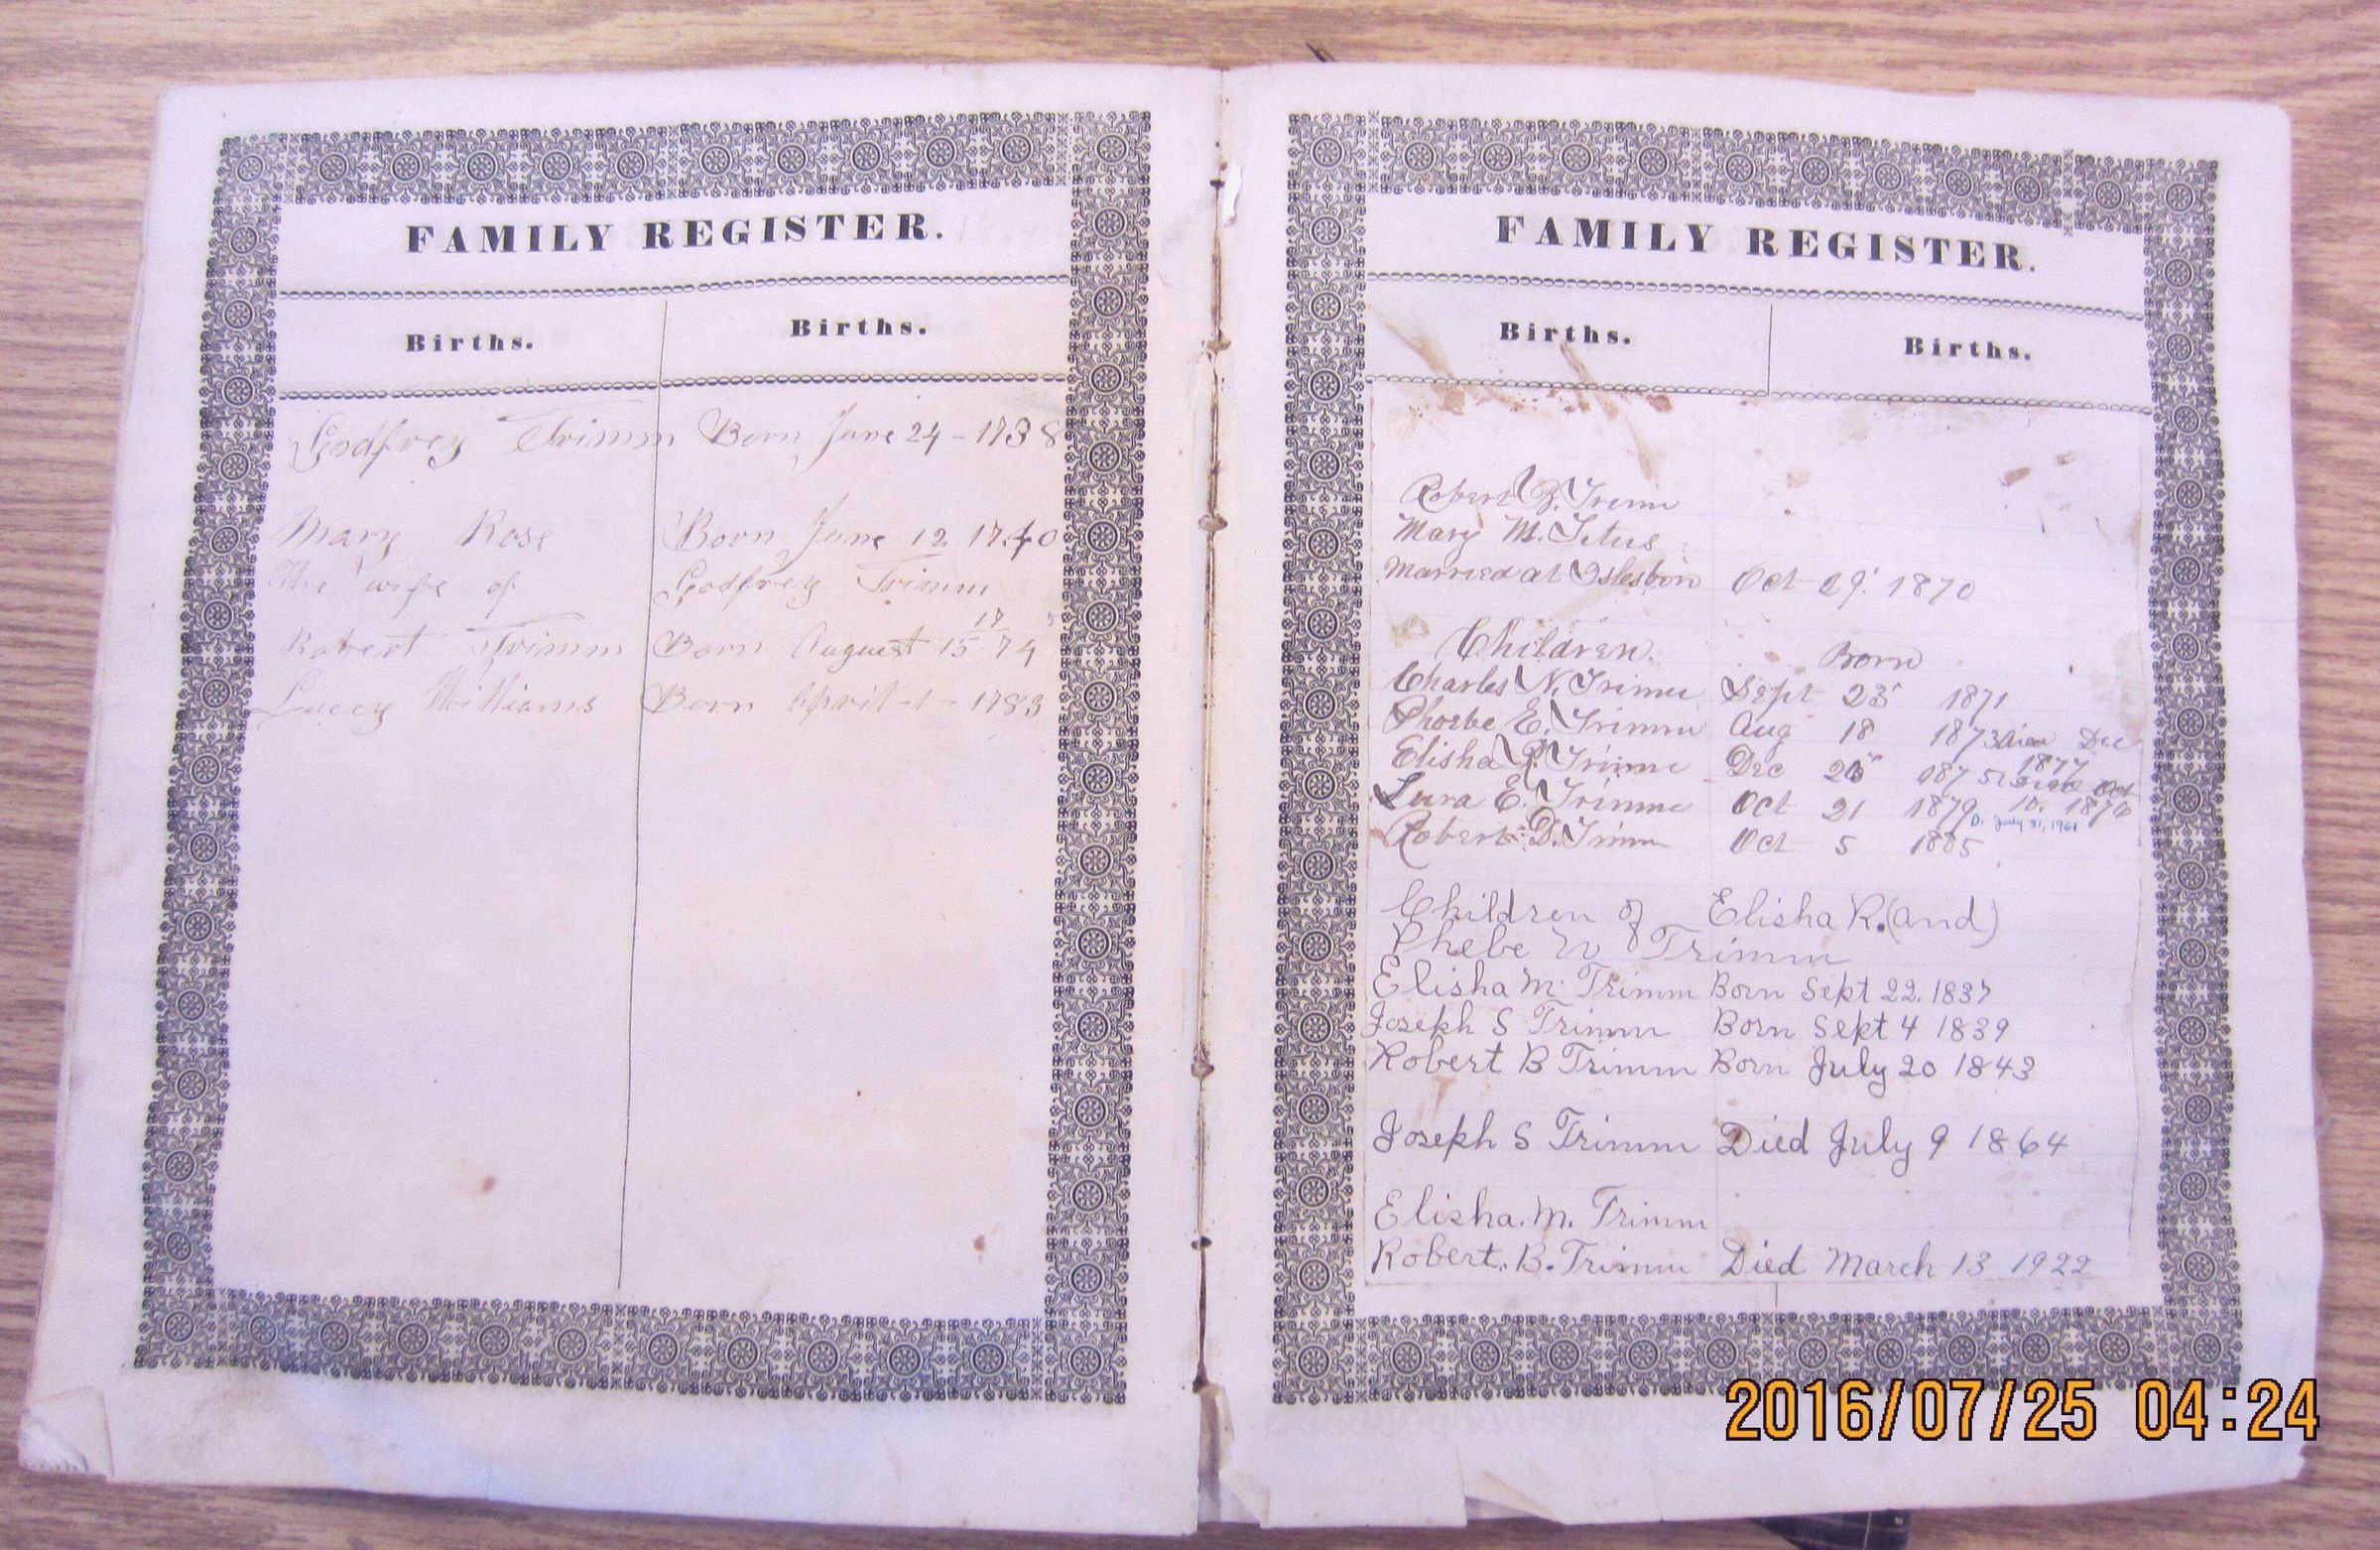 FAMILY REGISTER.
Births. Births.
Godfrey Trimm Born June 24 - 1738
Mary Rose Born June 12 1740
The wife of Godfrey Trimm
17
Robert Trimm Born August 15 74
Lucey Williams Born April 1 - 1783
FAMILY REGISTER.
Births. Births.
Robert B. Trimm
Mary M. Titus
Married at Islesboro Oct 29. 1870
Children. Born
Charles N. Trimm Sept 23 1871
Phoebe E. Trimm Aug 18 1873 Died Dec
1877
Elisha R. Trimm Dec 1875 Died Oct
10. 1876
Lura E. Trimm Oct 21 1879 D. July 31, 1961
Robert D. Trimm Oct 5 1885
Children of Elisha R. (and)
Phebe W Trimm
Elisha M. Trimm Born Sept 22. 1837
Joseph S Trimm Born Sept 4 1839
Robert B Trimm Born July 20 1843
Joseph S Trimm Died July 9 1864
Elisha. M. Trimm
Robert. B. Trimm Died March 13 1922
2016/07/25 04:24